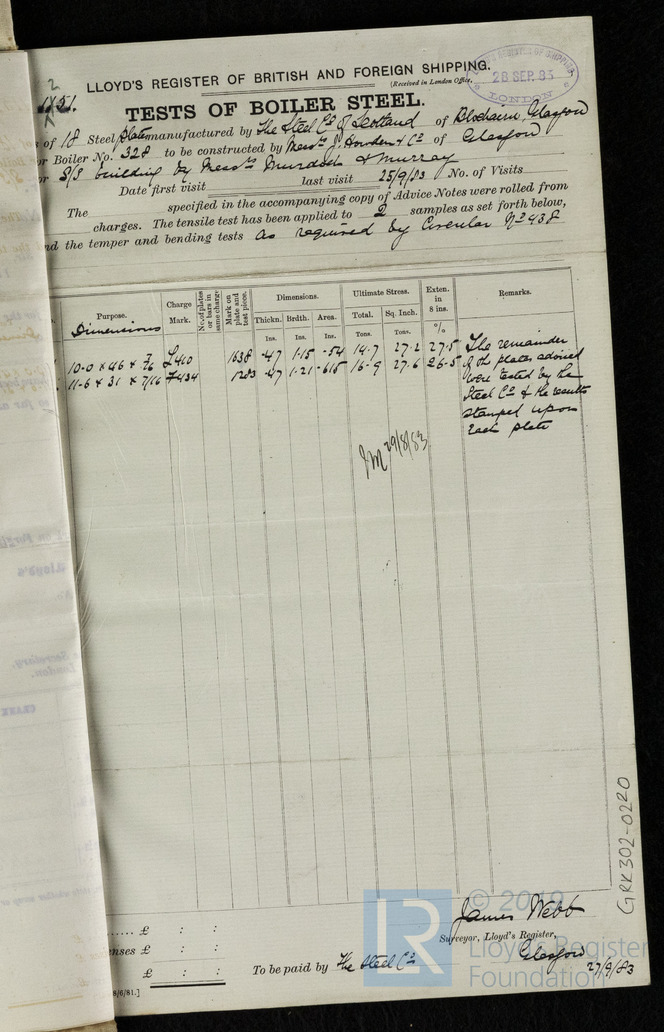 LLOYD'S REGISTER OF BRITISH AND FOREIGN SHIPPING.
(Received in London Office,
LLOYD'S REGISTER OF SHIPPING
28 SEP. 83
LONDON
2
1851.
TESTS OF BOILER STEEL.
s of 18 Steel plates manufactured by The Steel Co of Scotland of Blochairn, Glasgow
or Boiler No. 328 to be constructed by Messrs J. Howden & Co of Glasgow
or S/S building by Messrs Murdoch & Murray
Date first visit last visit 25/9/83 No. of Visits
The specified in the accompanying copy of Advice Notes were rolled from
charges. The tensile test has been applied to 2 samples as set forth below,
nd the temper and bending tests as required by Circular No 438
Purpose. Charge Mark. No. of plates or bars in same charge Mark on plate and test piece. Dimensions. Ultimate Stress. Exten. in 8 ins. Remarks.
Dimensions Thickn. Brdth. Area. Total. Sq. Inch.
Ins. Ins. Ins. Tons. Tons. %
10-0 x 46 x 7/16 L410 1638 .47 1.15 .54 14.7 27.2 27.5
11-6 x 31 x 7/16 F434 1283 .47 1.21 .615 16.9 27.6 26.5
The remainder
of the plates advised
were tested by the
Steel Co & the results
stamped upon
each plate
JM 29/8/83
GRK302-0220
© 2019
James Webb
Surveyor, Lloyd's Register,
Glasgow
27/9/83
LR
Lloyd's Register
Foundation
...... £ : :
enses £ : :
£ : :
To be paid by The Steel Co
8/6/81.]